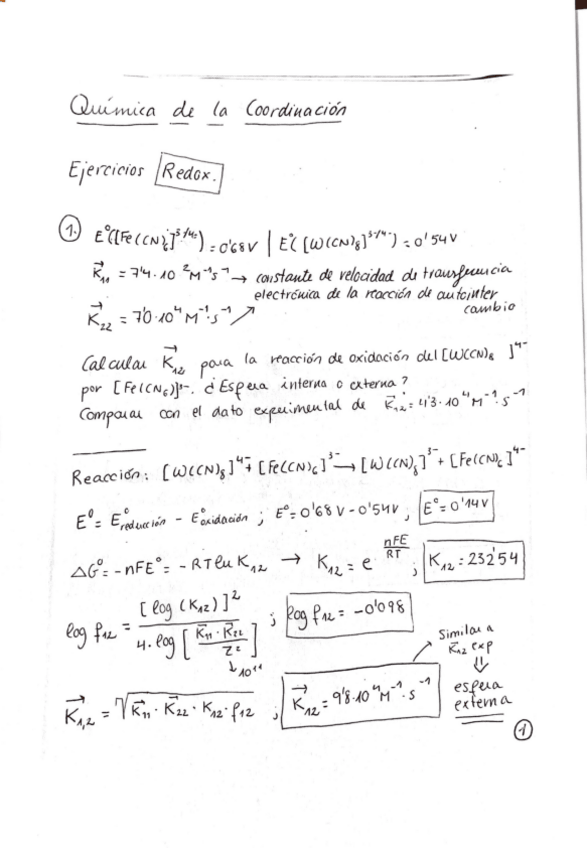 Química de la Coordinación
Ejercicios Redox.
1. E°([Fe(CN)6]3-/4-) = 0'68V | E°([W(CN)8]3-/4-) = 0'54V
K⃗11 = 7'4·10²M⁻¹s⁻¹ → constante de velocidad de transferencia
electrónica de la reacción de autointer
cambio
K⃗22 = 7'0·10⁴M⁻¹·s⁻¹ ↗
Calcular K⃗12 para la reacción de oxidación del [W(CN)8 ]⁴⁻
por [Fe(CN6)]³⁻. ¿Esfera interna o externa?
Comparar con el dato experimental de K⃗12 = 4'3·10⁴M⁻¹·s⁻¹
Reacción: [W(CN)8]⁴⁻ + [Fe(CN)6]³⁻ → [W(CN)8]³⁻ + [Fe(CN)6]⁴⁻
E° = E°reducción - E°oxidación ; E° = 0'68V - 0'54V ; E° = 0'14V
ΔG° = -nFE° = -RTlnK12 → K12 = e^(nFE/RT) ; K12 = 232'54
log f12 = [log(K12)]² / 4·log[K⃗11·K⃗22 / Z²] ; log f12 = -0'098
↓ 10¹¹
Similar a
K⃗12 exp
⇓
esfera
externa
K⃗1,2 = √(K⃗11·K⃗22·K12·f12) ; K⃗12 = 9'8·10⁴M⁻¹·s⁻¹
1